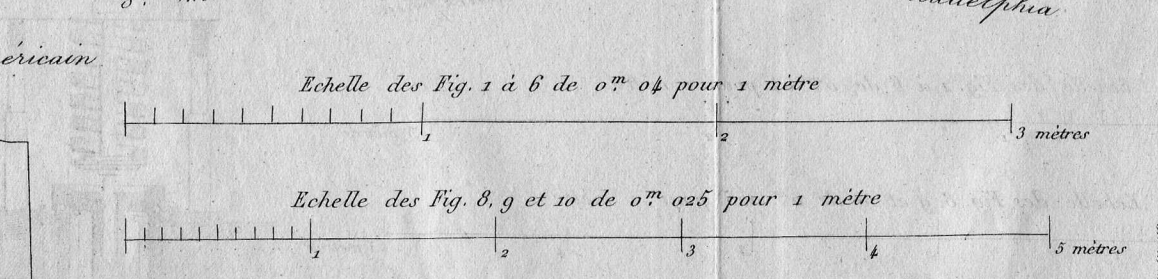 adelphia
éricain
Echelle des Fig. 1 à 6 de 0.m 04 pour 1 mètre
1 2 3 mètres
Echelle des Fig. 8, 9 et 10 de 0.m 025 pour 1 mètre
1 2 3 4 5 mètres